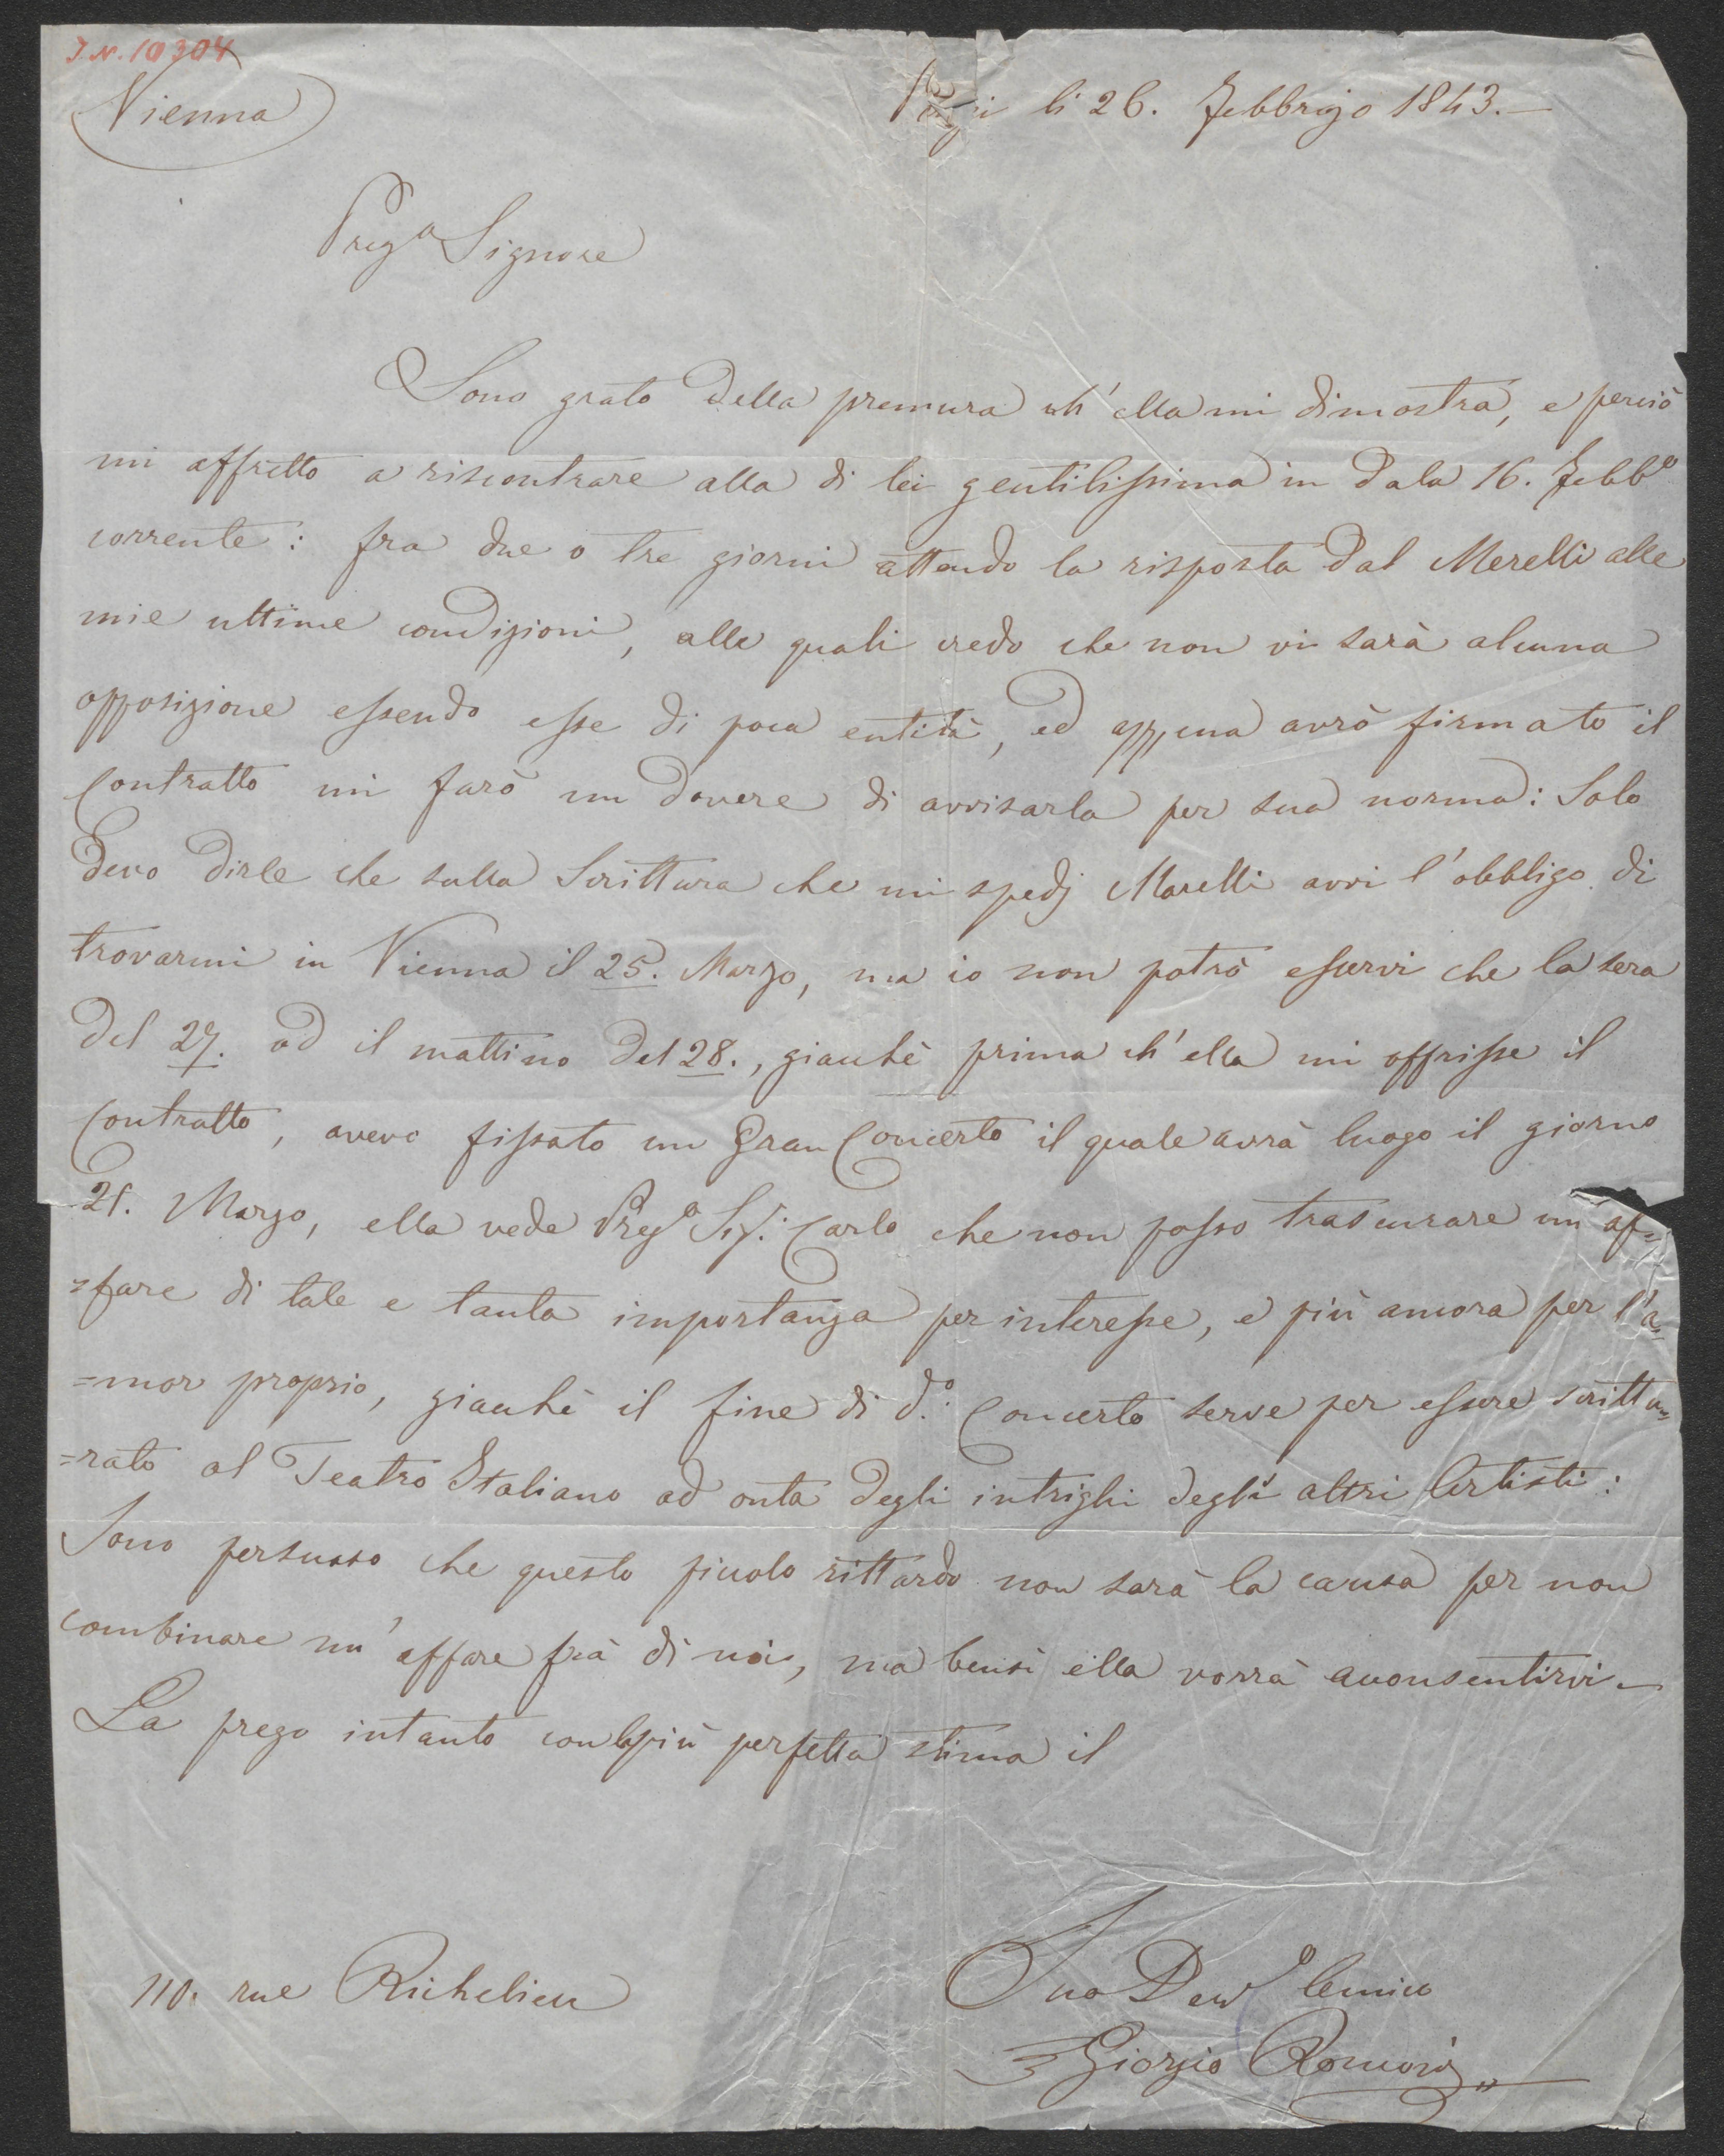 I.N. 10304
Vienna
Parigi li 26. Febbrajo 1843.—
Preg.o Signore
Sono grato della premura ch'ella mi dimostra, e perciò
mi affretto a riscontrare alla di lei gentilissima in data 16. Febb.o
corrente: fra due o tre giorni attendo la risposta dal Merelli alle
mie ultime condizioni, alle quali credo che non vi sarà alcuna
opposizione essendo esse di poca entità, ed appena avrò firmato il
Contratto mi farò un dovere di avvisarla per sua norma: Solo
devo dirle che sulla Scrittura che mi spedj Merelli avvi l'obbligo di
trovarmi in Vienna il 25. Marzo, ma io non potrò esservi che la sera
del 27. od il mattino del 28., giacchè prima ch'ella mi offrisse il
Contratto, avevo fissato un Gran Concerto il quale avrà luogo il giorno
21. Marzo, ella vede Preg.o Sig.: Carlo che non posso trascurare un af=
=fare di tale e tanta importanza per interesse, e più ancora per l'a=
=mor proprio, giacchè il fine di d.o: Concerto serve per essere scrittu=
=rato al Teatro Italiano ad onta degli intrighi degli altri Artisti:
Sono persuaso che questo piccolo rittardo non sarà la causa per non
combinare un'affare frà di noi, ma bensì ella vorrà acconsentirvi.—
La prego intanto con la più perfetta stima il
110. rue Richelieu
Suo Dev.o Amico
Giorgio Ronconi